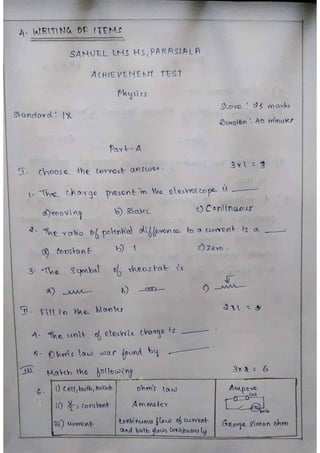 4. WRITING OF ITEMS
SAMUEL LMS HS, PARASSALA
ACHIEVEMENT TEST
Physics
Score : 25 marks
Standard : IX
Duration : 40 minutes
Part - A
I. Choose the correct answer. 3x1 = 3
1. The charge present in the electroscope is ____
a) moving b) static c) Continuous
2. The ratio of potential difference to a current is a ____
a) constant b) 1 c) Zero.
3. The symbol of rheostat is
a) b) c)
II. Fill in the blanks 2x1 =
4. The unit of electric charge is ____
5. Ohm's law was found by ____
III Match the following 3x2 = 6
6. i) Cell, bulb, switch Ohm's law Ampere
ii) V/I = constant Ammeter Cell
iii) current Continuous flow of current George Simon ohm
and bulb glows continuously